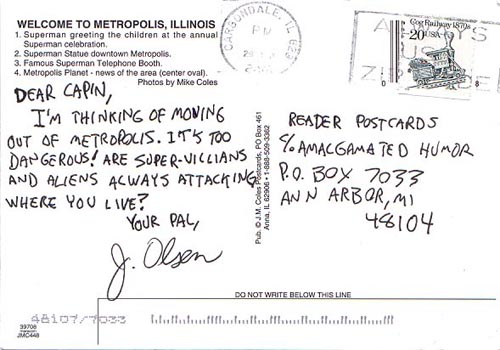 WELCOME TO METROPOLIS, ILLINOIS
1. Superman greeting the children at the annual
Superman celebration.
2. Superman Statue downtown Metropolis.
3. Famous Superman Telephone Booth.
4. Metropolis Planet - news of the area (center oval).
Photos by Mike Coles
CARBONDALE, IL
PM
Cog Railway 1870s
20 USA
DEAR CAPIN,
I'M THINKING OF MOVING
OUT OF METROPOLIS. IT'S TOO
DANGEROUS! ARE SUPER-VILLIANS
AND ALIENS ALWAYS ATTACKING
WHERE YOU LIVE?
YOUR PAL,
J. Olsen
Pub. © J.M. Coles Postcards, PO Box 461
Anna, IL 62906 • 1-888-509-3362
READER POSTCARDS
c/o AMALGAMATED HUMOR
P.O. BOX 7033
ANN ARBOR, MI
48104
DO NOT WRITE BELOW THIS LINE
48107/7033
39708
JMC448